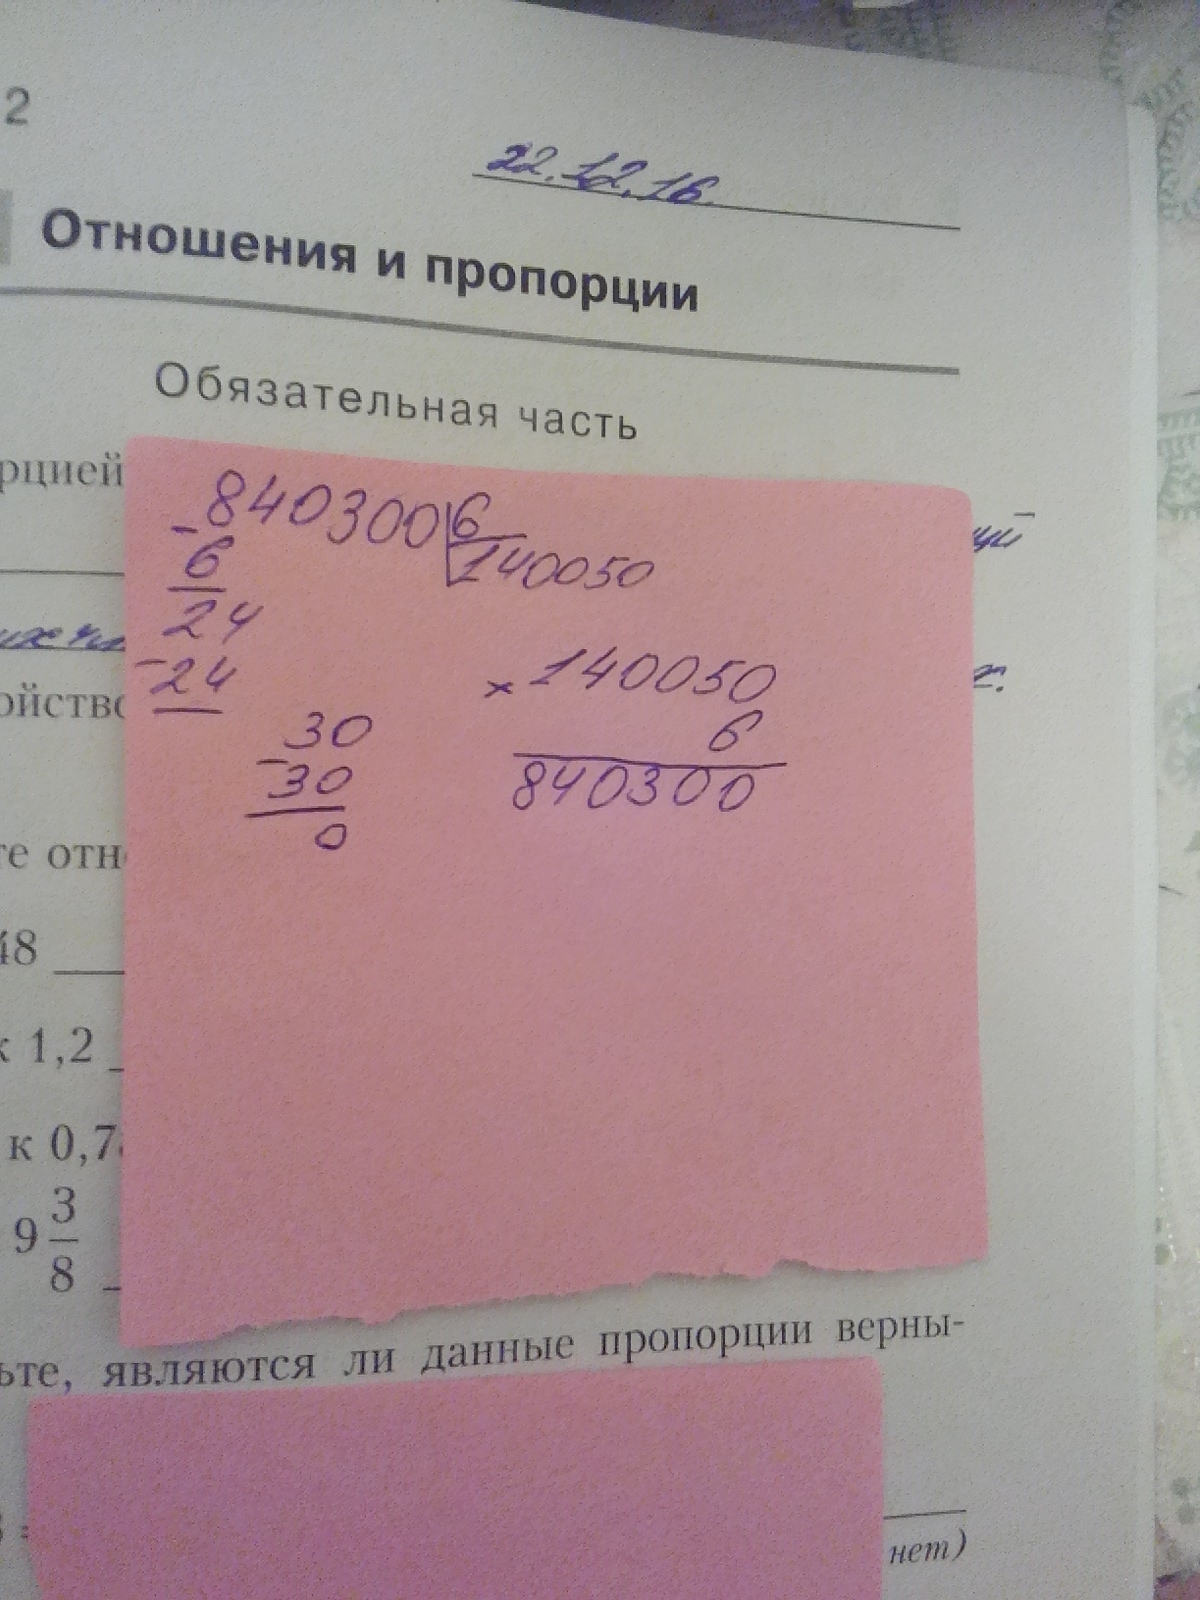 2
22.12.16
Отношения и пропорции
Обязательная часть
рцией
840300 6
- 6 140050
24
- 24
ойство
140050
× 6
840300
30
- 30
0
те отн
48
к 1,2
к 0,7
9 3/8
ьте, являются ли данные пропорции верны-
нет)